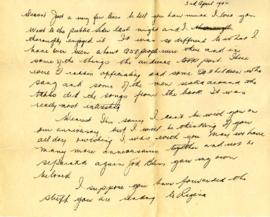 2nd April 1942
Dearest Just a very few lines to tell you how much I love you
Went to the public show last night and I
thoroughly enjoyed it. It was so different to what I
have ever seen about 250 people were there and in
some of the things the audience took part. There
were I readers and some 20 soldiers who
sang and some of the men sat around the
tables did the songs from the book. It was
really most interesting
Dearest I'm sorry I can't be with you on
our anniversary but I will be thinking of you
all day wishing I was with you. May we have
many more anniversaries together and not be
separated again God Bless you my own
beloved
I suppose you have forwarded the
stuff you are sending to Regina